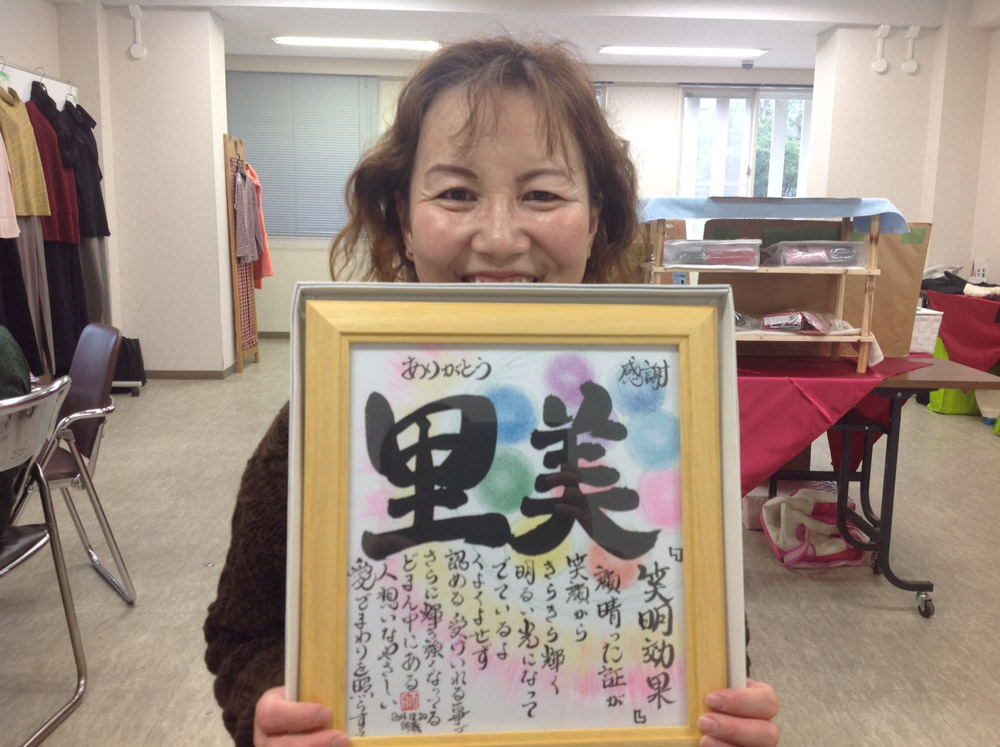 ありがとう
感謝
里美
『笑明効果』
顔晴った証が
笑顔から
きらきら輝く
明るい光になって
でているよ
くよくよせず
認める・受けいれる事で
さらに輝き強くなってる
どまん中にある
人想いなやさしい
愛でまわりを照らす